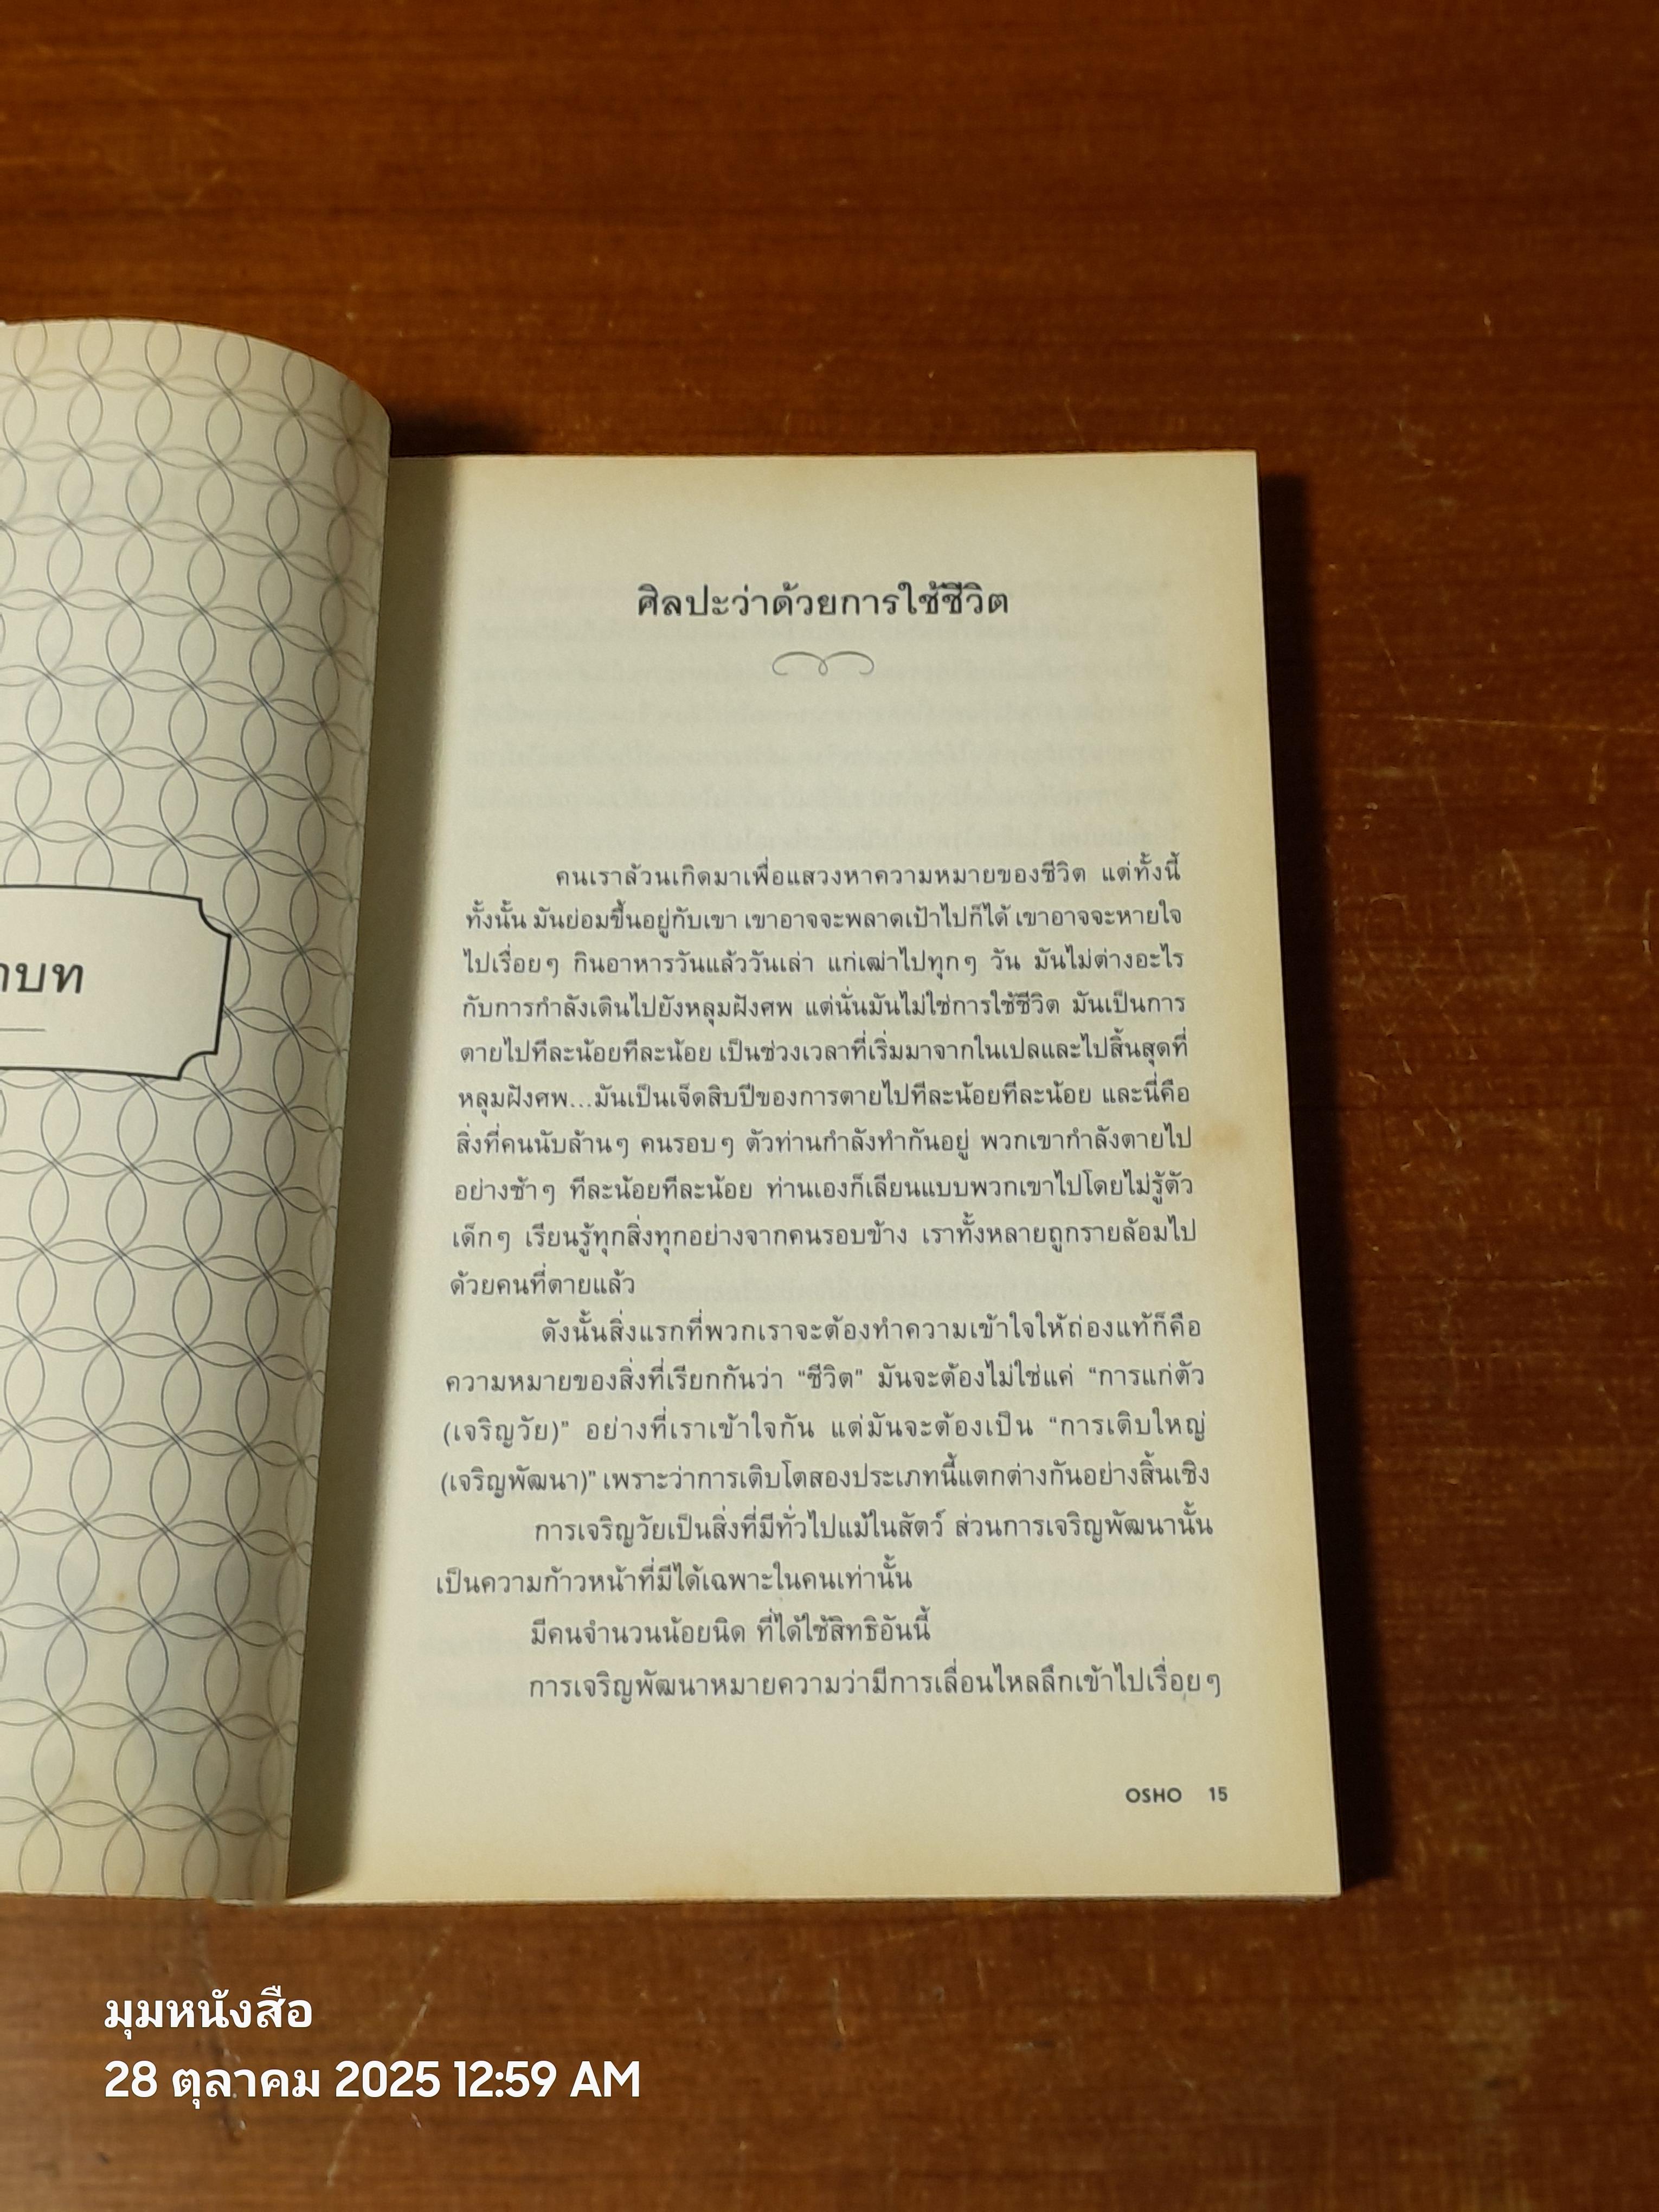 บท
ศิลปะว่าด้วยการใช้ชีวิต
คนเราล้วนเกิดมาเพื่อแสวงหาความหมายของชีวิต แต่ทั้งนี้
ทั้งนั้น มันย่อมขึ้นอยู่กับเขา เขาอาจจะพลาดเป้าไปก็ได้ เขาอาจจะหายใจ
ไปเรื่อยๆ กินอาหารวันแล้ววันเล่า แก่เฒ่าไปทุกๆ วัน มันไม่ต่างอะไร
กับการกำลังเดินไปยังหลุมฝังศพ แต่นั่นมันไม่ใช่การใช้ชีวิต มันเป็นการ
ตายไปทีละน้อยทีละน้อย เป็นช่วงเวลาที่เริ่มมาจากในเปลและไปสิ้นสุดที่
หลุมฝังศพ...มันเป็นเจ็ดสิบปีของการตายไปทีละน้อยทีละน้อย และนี่คือ
สิ่งที่คนนับล้านๆ คนรอบๆ ตัวท่านกำลังทำกันอยู่ พวกเขากำลังตายไป
อย่างช้าๆ ทีละน้อยทีละน้อย ท่านเองก็เลียนแบบพวกเขาไปโดยไม่รู้ตัว
เด็กๆ เรียนรู้ทุกสิ่งทุกอย่างจากคนรอบข้าง เราทั้งหลายถูกรายล้อมไป
ด้วยคนที่ตายแล้ว
ดังนั้นสิ่งแรกที่พวกเราจะต้องทำความเข้าใจให้ถ่องแท้ก็คือ
ความหมายของสิ่งที่เรียกกันว่า “ชีวิต” มันจะต้องไม่ใช่แค่ “การแก่ตัว
(เจริญวัย)” อย่างที่เราเข้าใจกัน แต่มันจะต้องเป็น “การเติบใหญ่
(เจริญพัฒนา)” เพราะว่าการเติบโตสองประเภทนี้แตกต่างกันอย่างสิ้นเชิง
การเจริญวัยเป็นสิ่งที่มีทั่วไปแม้ในสัตว์ ส่วนการเจริญพัฒนานั้น
เป็นความก้าวหน้าที่มีได้เฉพาะในคนเท่านั้น
มีคนจำนวนน้อยนิด ที่ได้ใช้สิทธิอันนี้
การเจริญพัฒนาหมายความว่ามีการเลื่อนไหลลึกเข้าไปเรื่อยๆ
OSHO 15
มุมหนังสือ
28 ตุลาคม 2025 12:59 AM